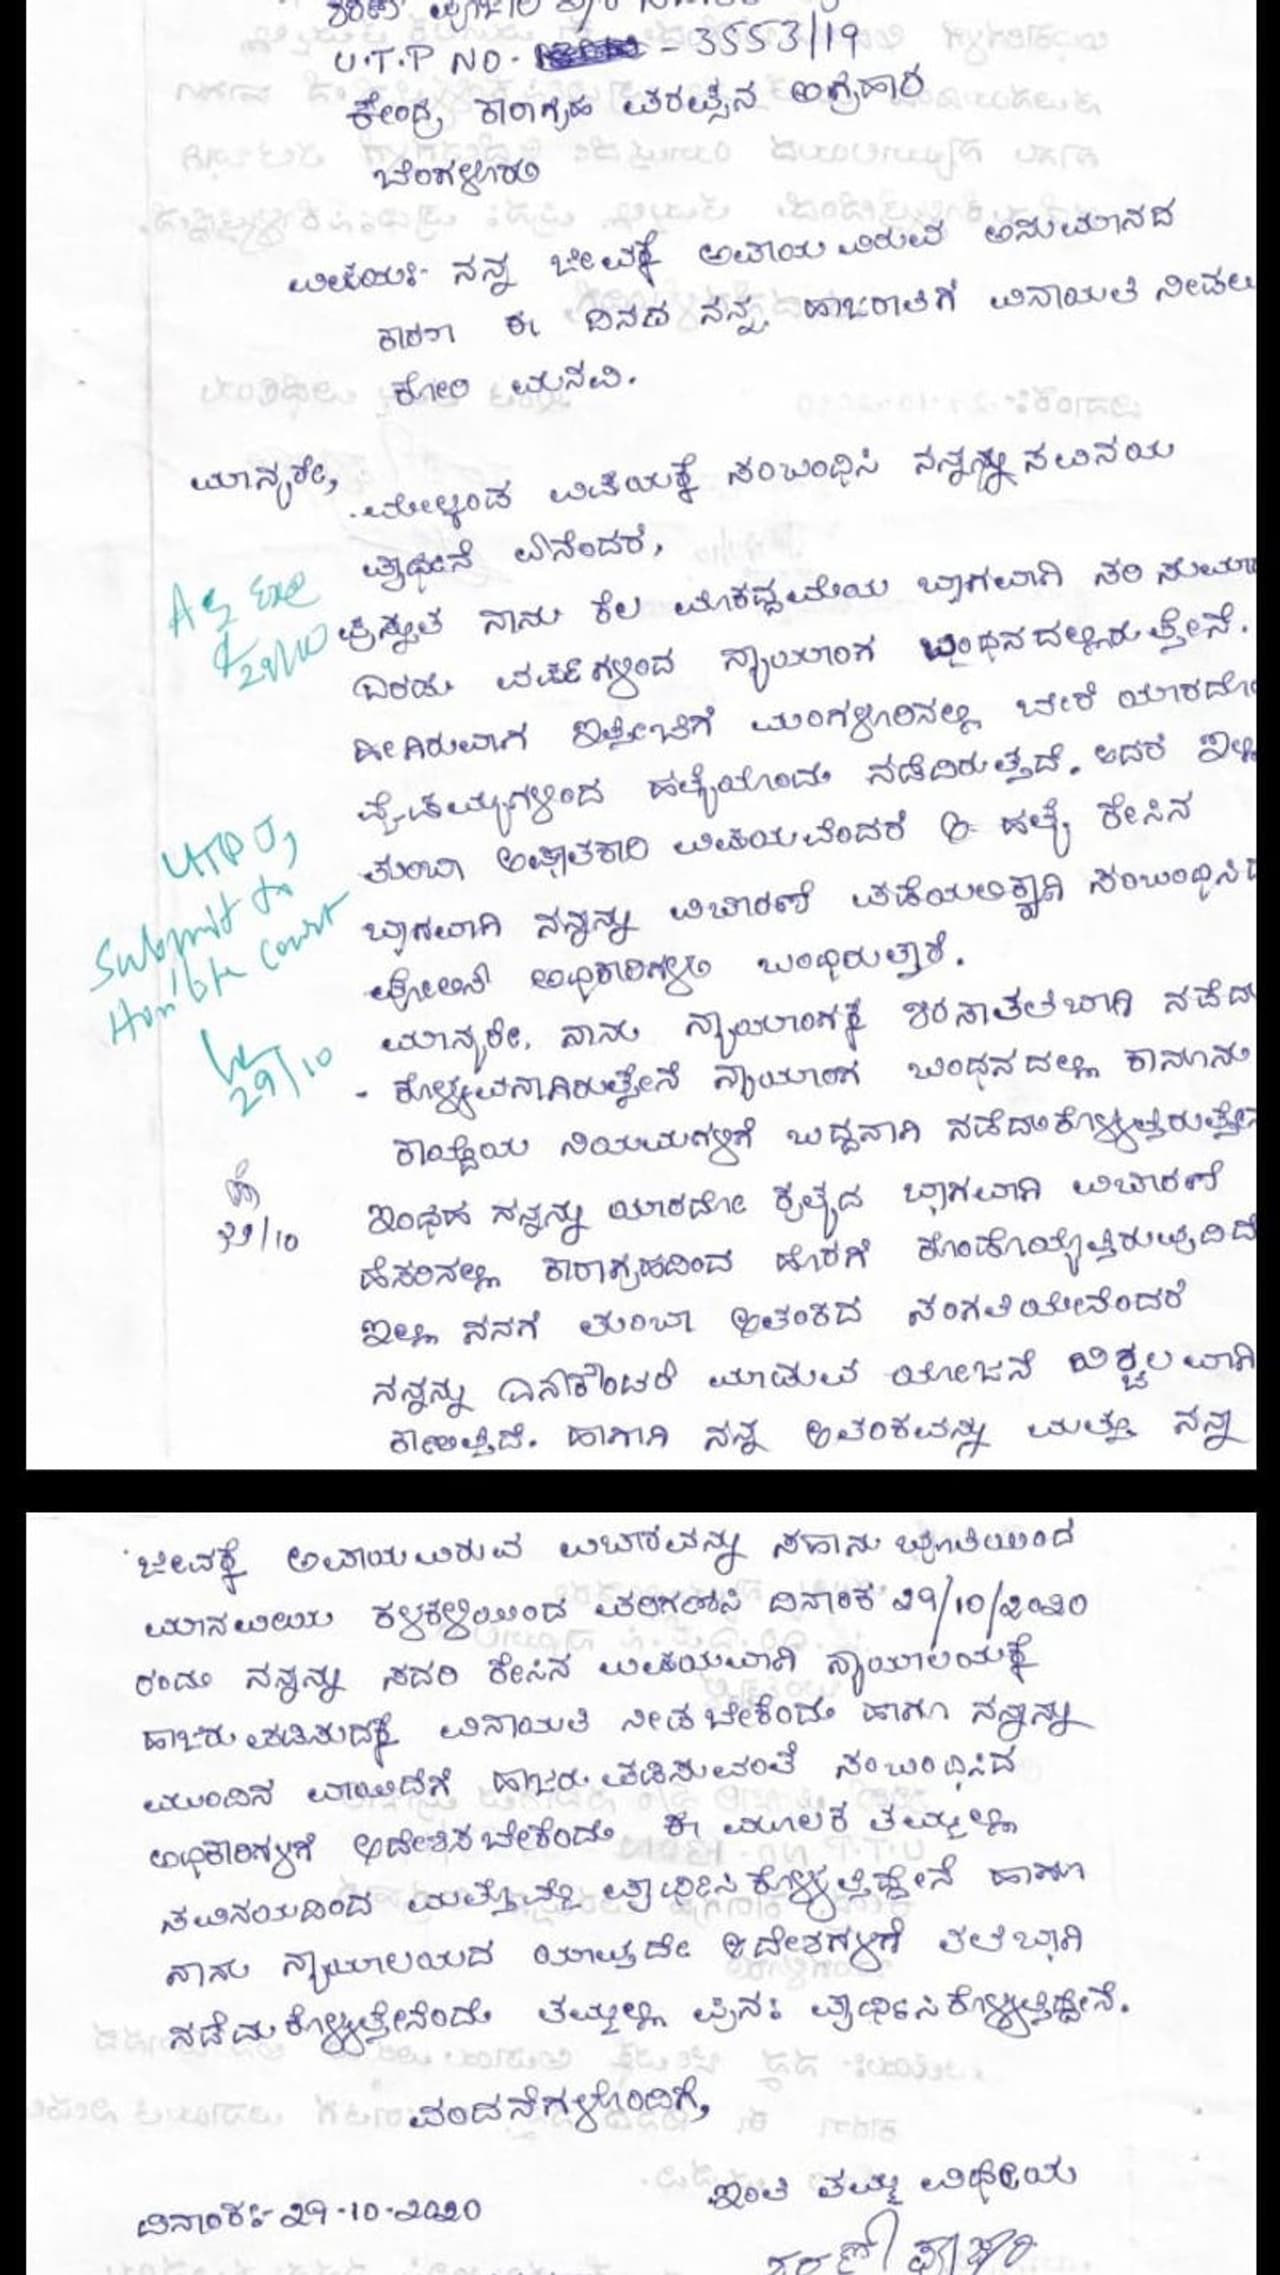 U.T.P NO. - 3553/19
ಕೇಂದ್ರ ಕಾರಾಗೃಹ ಪರಪ್ಪನ ಅಗ್ರಹಾರ
ಬೆಂಗಳೂರು
ವಿಷಯ:- ನನ್ನ ಜೀವಕ್ಕೆ ಅಪಾಯವಿರುವ ಅನುಮಾನದ
ಕಾರಣ ಈ ದಿನದ ನನ್ನ ಹಾಜರಾತಿಗೆ ವಿನಾಯತಿ ನೀಡಲು
ಕೋರಿ ಮನವಿ.
ಮಾನ್ಯರೇ,
ಮೇಲ್ಕಂಡ ವಿಷಯಕ್ಕೆ ಸಂಬಂಧಿಸಿ ನನ್ನ ಸವಿನಯ
ಪ್ರಾರ್ಥನೆ ಏನೆಂದರೆ,
ಪ್ರಸ್ತುತ ನಾನು ಕೆಲ ಮೊಕದ್ದಮೆಯ ಭಾಗವಾಗಿ ಸರಿ ಸುಮಾರು
ಎರಡು ವರ್ಷಗಳಿಂದ ನ್ಯಾಯಾಂಗ ಬಂಧನದಲ್ಲಿರುತ್ತೇನೆ.
ಹೀಗಿರುವಾಗ ಇತ್ತೀಚೆಗೆ ಮಂಗಳೂರಿನಲ್ಲಿ ಬೇರೆ ಯಾರದೋ
ವೈಷಮ್ಯಗಳಿಂದ ಹತ್ಯೆಯೊಂದು ನಡೆದಿರುತ್ತದೆ. ಆದರೆ ಇಲ್ಲಿ
ತುಂಬಾ ಆಘಾತಕಾರಿ ವಿಷಯವೆಂದರೆ ಆ ಹತ್ಯೆ ಕೇಸಿನ
ಭಾಗವಾಗಿ ನನ್ನನ್ನು ವಿಚಾರಣೆ ಪಡೆಯಲಿಕ್ಕಾಗಿ ಸಂಬಂಧಿಸಿದ
ಪೋಲಿಸ್ ಅಧಿಕಾರಿಗಳು ಬಂಧಿರುತ್ತಾರೆ.
ಮಾನ್ಯರೇ, ನಾನು ನ್ಯಾಯಾಂಗಕ್ಕೆ ಶಿರಸಾತಲಬಾಗಿ ನಡೆದು
- ಕೊಳ್ಳುವನಾಗಿರುತ್ತೇನೆ ನ್ಯಾಯಾಂಗ ಬಂಧನದಲ್ಲಿ ಕಾನೂನು
ಕಾಯ್ದೆಯ ನಿಯಮಗಳಿಗೆ ಬದ್ದನಾಗಿ ನಡೆದುಕೊಳ್ಳುತ್ತಿರುತ್ತೇನೆ
ಇಂಥಹ ನನ್ನನ್ನು ಯಾರದೋ ಕೃತ್ಯದ ಭಾಗವಾಗಿ ವಿಚಾರಣೆ
ಹೆಸರಿನಲ್ಲಿ ಕಾರಾಗೃಹದಿಂದ ಹೊರಗೆ ಕೊಂಡೊಯ್ಯುತ್ತಿರುವುದಿದೆ
ಇಲ್ಲಿ ನನಗೆ ತುಂಬಾ ಆತಂಕದ ಸಂಗತಿಯೇನೆಂದರೆ
ನನ್ನನ್ನು ಎನ್‌ಕೌಂಟರ್ ಮಾಡುವ ಯೋಜನೆ ನಿಚ್ಚಲವಾಗಿ
ಕಾಣುತ್ತಿದೆ. ಹಾಗಾಗಿ ನನ್ನ ಆತಂಕವನ್ನು ಮತ್ತು ನನ್ನ
UTPO,
Submit to
Hon'ble court
29/10
29/10
ಜೀವಕ್ಕೆ ಅಪಾಯವಿರುವ ವಿಚಾರವನ್ನು ಸಹಾನುಭೂತಿಯಿಂದ
ಮಾನವೀಯ ಕಳಕಳಿಯಿಂದ ಪರಿಗಣಿಸಿ ದಿನಾಂಕ 29/10/2020
ರಂದು ನನ್ನನ್ನು ಸದರಿ ಕೇಸಿನ ವಿಷಯವಾಗಿ ನ್ಯಾಯಾಲಯಕ್ಕೆ
ಹಾಜರುಪಡಿಸುದಕ್ಕೆ ವಿನಾಯತಿ ನೀಡಬೇಕೆಂದು ಹಾಗೂ ನನ್ನನ್ನು
ಮುಂದಿನ ವಾಯಿದೆಗೆ ಹಾಜರು ಪಡಿಸುವಂತೆ ಸಂಬಂಧಿಸಿದ
ಅಧಿಕಾರಿಗಳಿಗೆ ಆದೇಶಿಸಬೇಕೆಂದು ಈ ಮೂಲಕ ತಮ್ಮಲ್ಲಿ
ಸವಿನಯದಿಂದ ಮತ್ತೊಮ್ಮೆ ಪ್ರಾರ್ಥಿಸಿಕೊಳ್ಳುತ್ತಿದ್ದೇನೆ ಹಾಗೂ
ನಾನು ನ್ಯಾಯಾಲಯದ ಯಾವುದೇ ಆದೇಶಗಳಿಗೆ ತಲೆಬಾಗಿ
ನಡೆದುಕೊಳ್ಳುತ್ತೇನೆಂದು ತಮ್ಮಲ್ಲಿ ಪುನಃ ಪ್ರಾರ್ಥಿಸಿಕೊಳ್ಳುತ್ತಿದ್ದೇನೆ.
ವಂದನೆಗಳೊಂದಿಗೆ,
ಇಂತಿ ತಮ್ಮ ವಿಧೇಯ
ದಿನಾಂಕ:- 29-10-2020